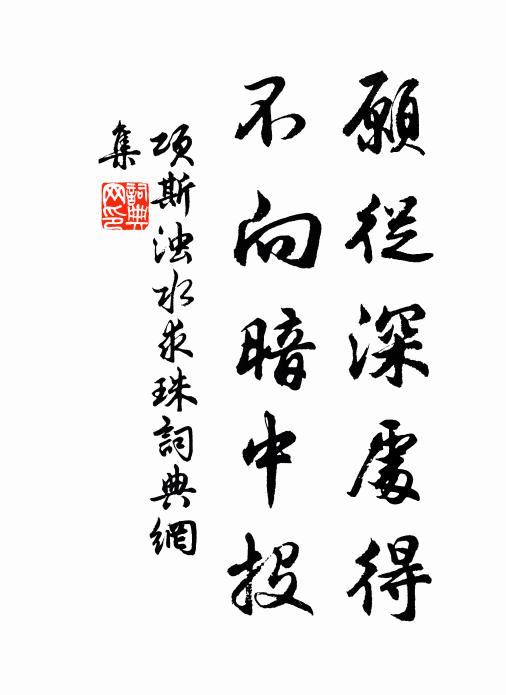 願從深處得
不向暗中投
項斯浊水求珠詞典網
集
詞典
网印